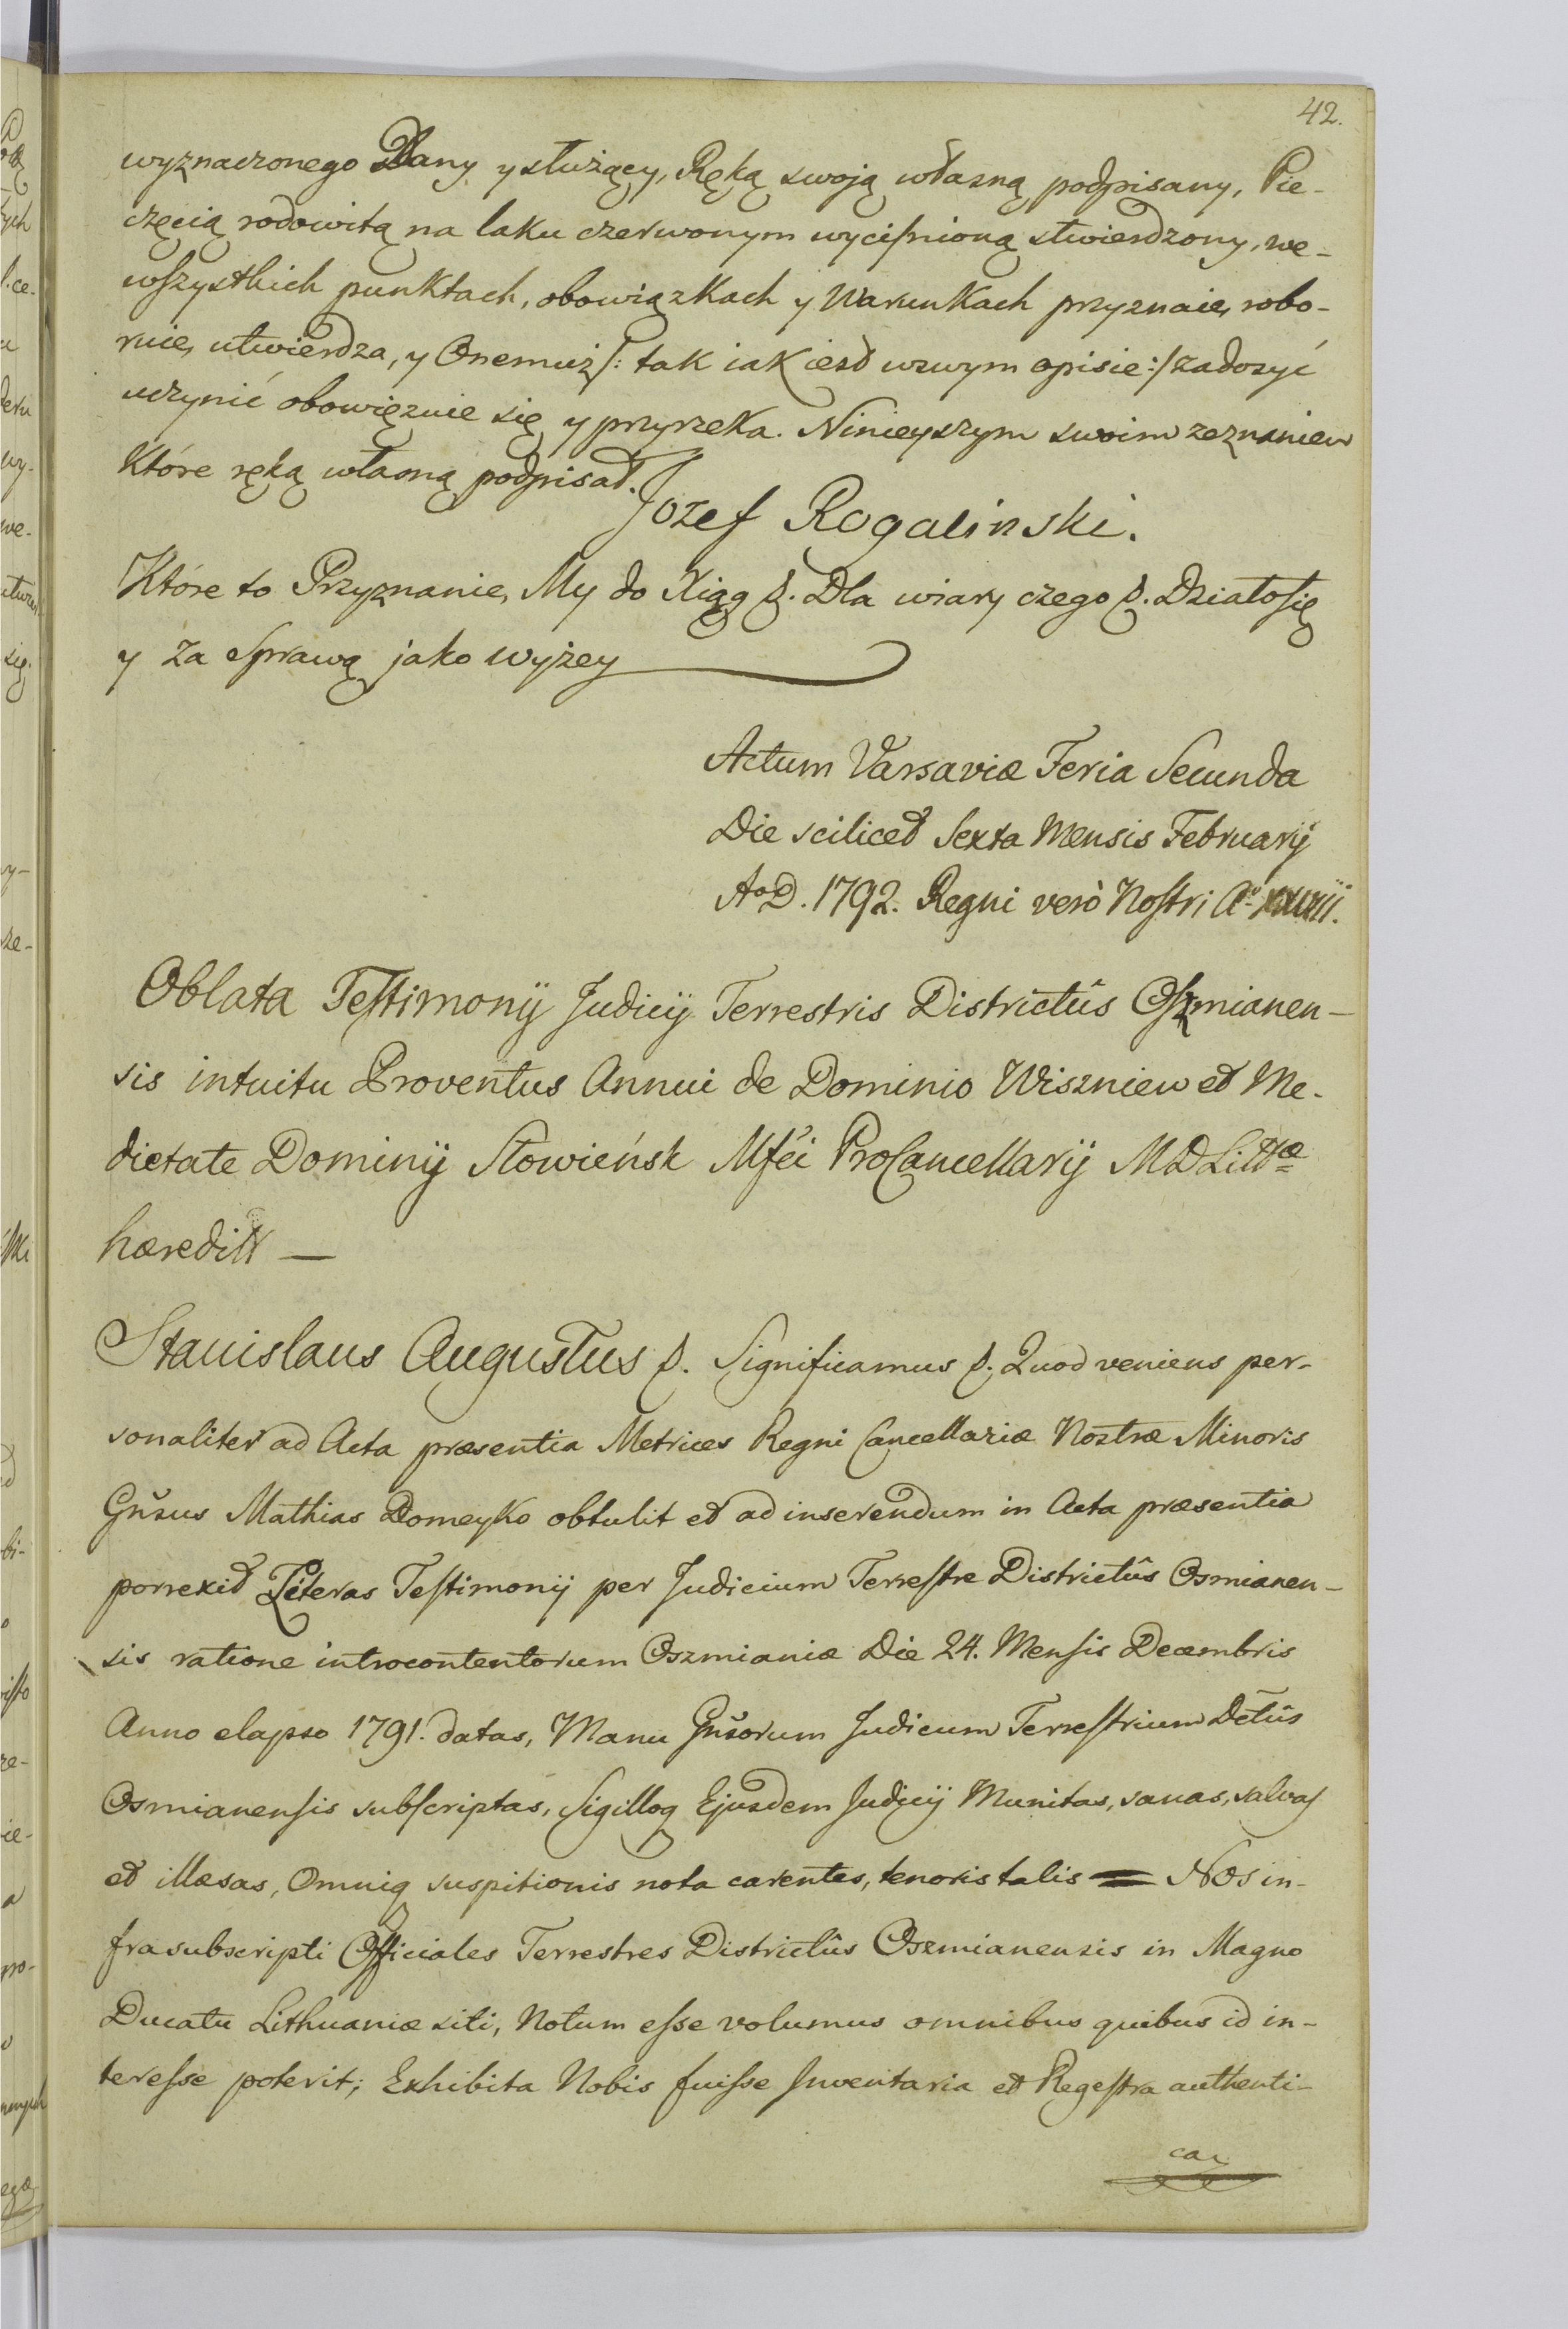 42.
wyznaczonego Dany y służący, Ręką swoją własną podpisany, Pie-
częcią rodowitą na laku czerwonym wyciſnioną stwierdzony, we-
wſzystkich punktach, obowiązkach y Warunkach przyznaie, robo-
ruie, utwierdza, y Onemuż /: tak iak iest wswym opisie :/ zadosyć
uczynić obowięzuie się y przyrzeka. Ninieyszym swoim zeznaniem
Które ręką własną podpisał.
Jozef Rogalinski.
Które to Przyznanie, My do Xiąg &. Dla wiary czego &. Działosię
y za Sprawą jako wyżey
Actum Varsaviæ Feria Secunda
Die scilicet Sexta Mensis February
AoD. 1792. Regni verò Noſtri Ao
Oblata Teſtimonij Judicij Terrestris Districtûs Oſzmianen-
sis intuitu Proventus Annui de Dominio Wiszniew et Me-
dietate Dominij Słowieńsk Mfci ProCancellarij MDLittæ
hæreditt —
Stanislaus Augustus &. Significamus &. Quod veniens per-
sonaliter ad Acta præsentia Metrices Regni Cancellariæ Nostræ Minoris
Gñsus Mathias Domeyko obtulit et ad inserendum in Acta præsentia
porrexit Literas Teſtimonij per Judicium Terreſtre Districtûs Osmianen-
sis ratione introcontentorum Oszmianiæ Die 24. Menſis Decembris
Anno elapso 1791. datas, Manu Gñsorum Judicum Terreſtrium Dttûs
Osmianenſis subſcriptas, Sigilloq Ejusdem Judicij Munitas, sanas, salvaſ
et illæsas, Omniq suspitionis nota carentes, tenoris talis = Nos in-
frasubscripti Officiales Terrestres Districtûs Oszmianensis in Magno
Ducatu Lithuaniæ siti, Notum eſse volumus omnibus quibus id in-
tereſse poterit; Exhibita Nobis fuiſse Inventaria et Regeſtra authenti-
ca